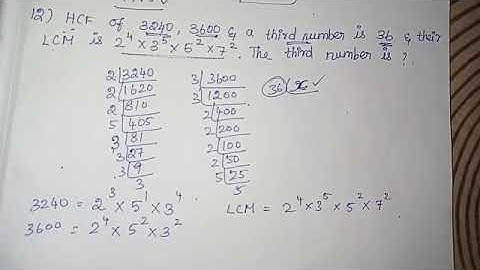 12) HCF of 3240, 3600 & a third number is 36 & their
LCM is 2⁴ × 3⁵ × 5² × 7². The third number is ?
2 | 3240
2 | 1620
2 | 810
5 | 405
3 | 81
3 | 27
3 | 9
3
3 | 3600
3 | 1200
2 | 400
2 | 200
2 | 100
2 | 50
5 | 25
5
36 | x ✓
3240 = 2³ × 5¹ × 3⁴
3600 = 2⁴ × 5² × 3²
LCM = 2⁴ × 3⁵ × 5² × 7²